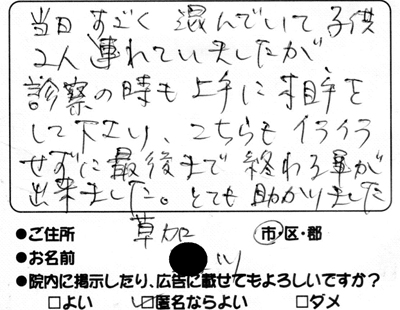 当日すごく混んでいて、子供
2人連れていましたが、
診察の時も上手に相手を
して下さり、こちらもイライラ
せずに最後まで終わる事が
出来ました。とても助かりました
●ご住所 草加 市・区・郡
●お名前 川
●院内に掲示したり、広告に載せてもよろしいですか?
□よい ☑匿名ならよい □ダメ